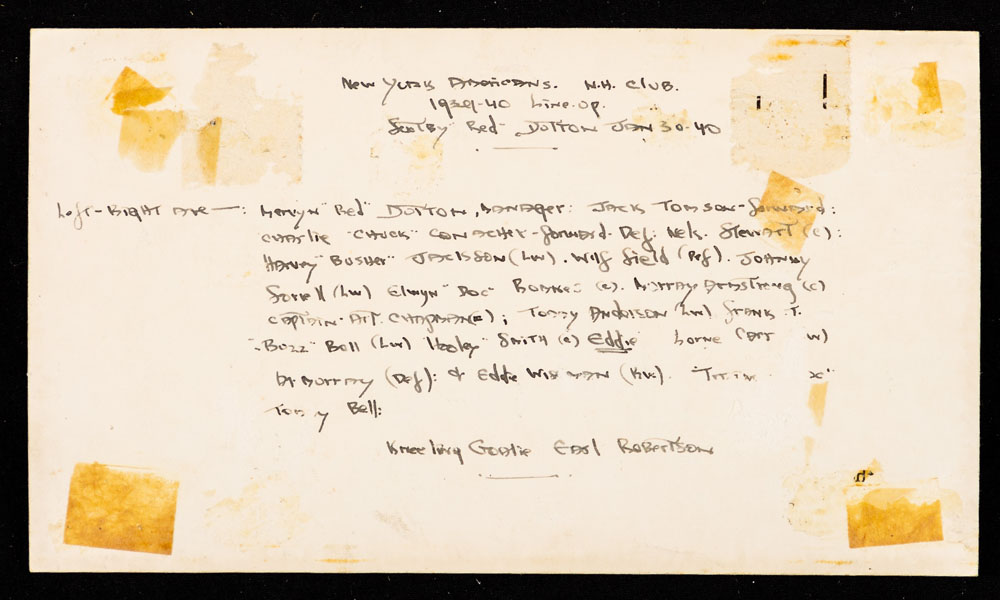 New York Americans. N.H. Club.
1939-40 Line-up.
Sent by "Red" Dutton Jan 30-40
Left-Right are—: Mervyn "Red" Dutton, Manager: Jack Tomson-forward:
Charlie "Chuck" Conacher-forward-Def: Nels. Stewart (c):
Harvey "Busher" Jackson (Lw). Wilf Field (Def). Johnny
Sorrell (Lw) Elwyn "Doc" Romnes (c). Murray Armstrong (c)
Captain Art. Chapman (c); Tommy Anderson (Lw) Frank T.
"Buzz" Boll (Lw) Hooley" Smith (c) Eddie Lorne Carr w)
Al Murray (Def): & Eddie Wiseman (Rw). "Trainer"
Tommy Bell:
Kneeling Goalie Earl Robertson
th